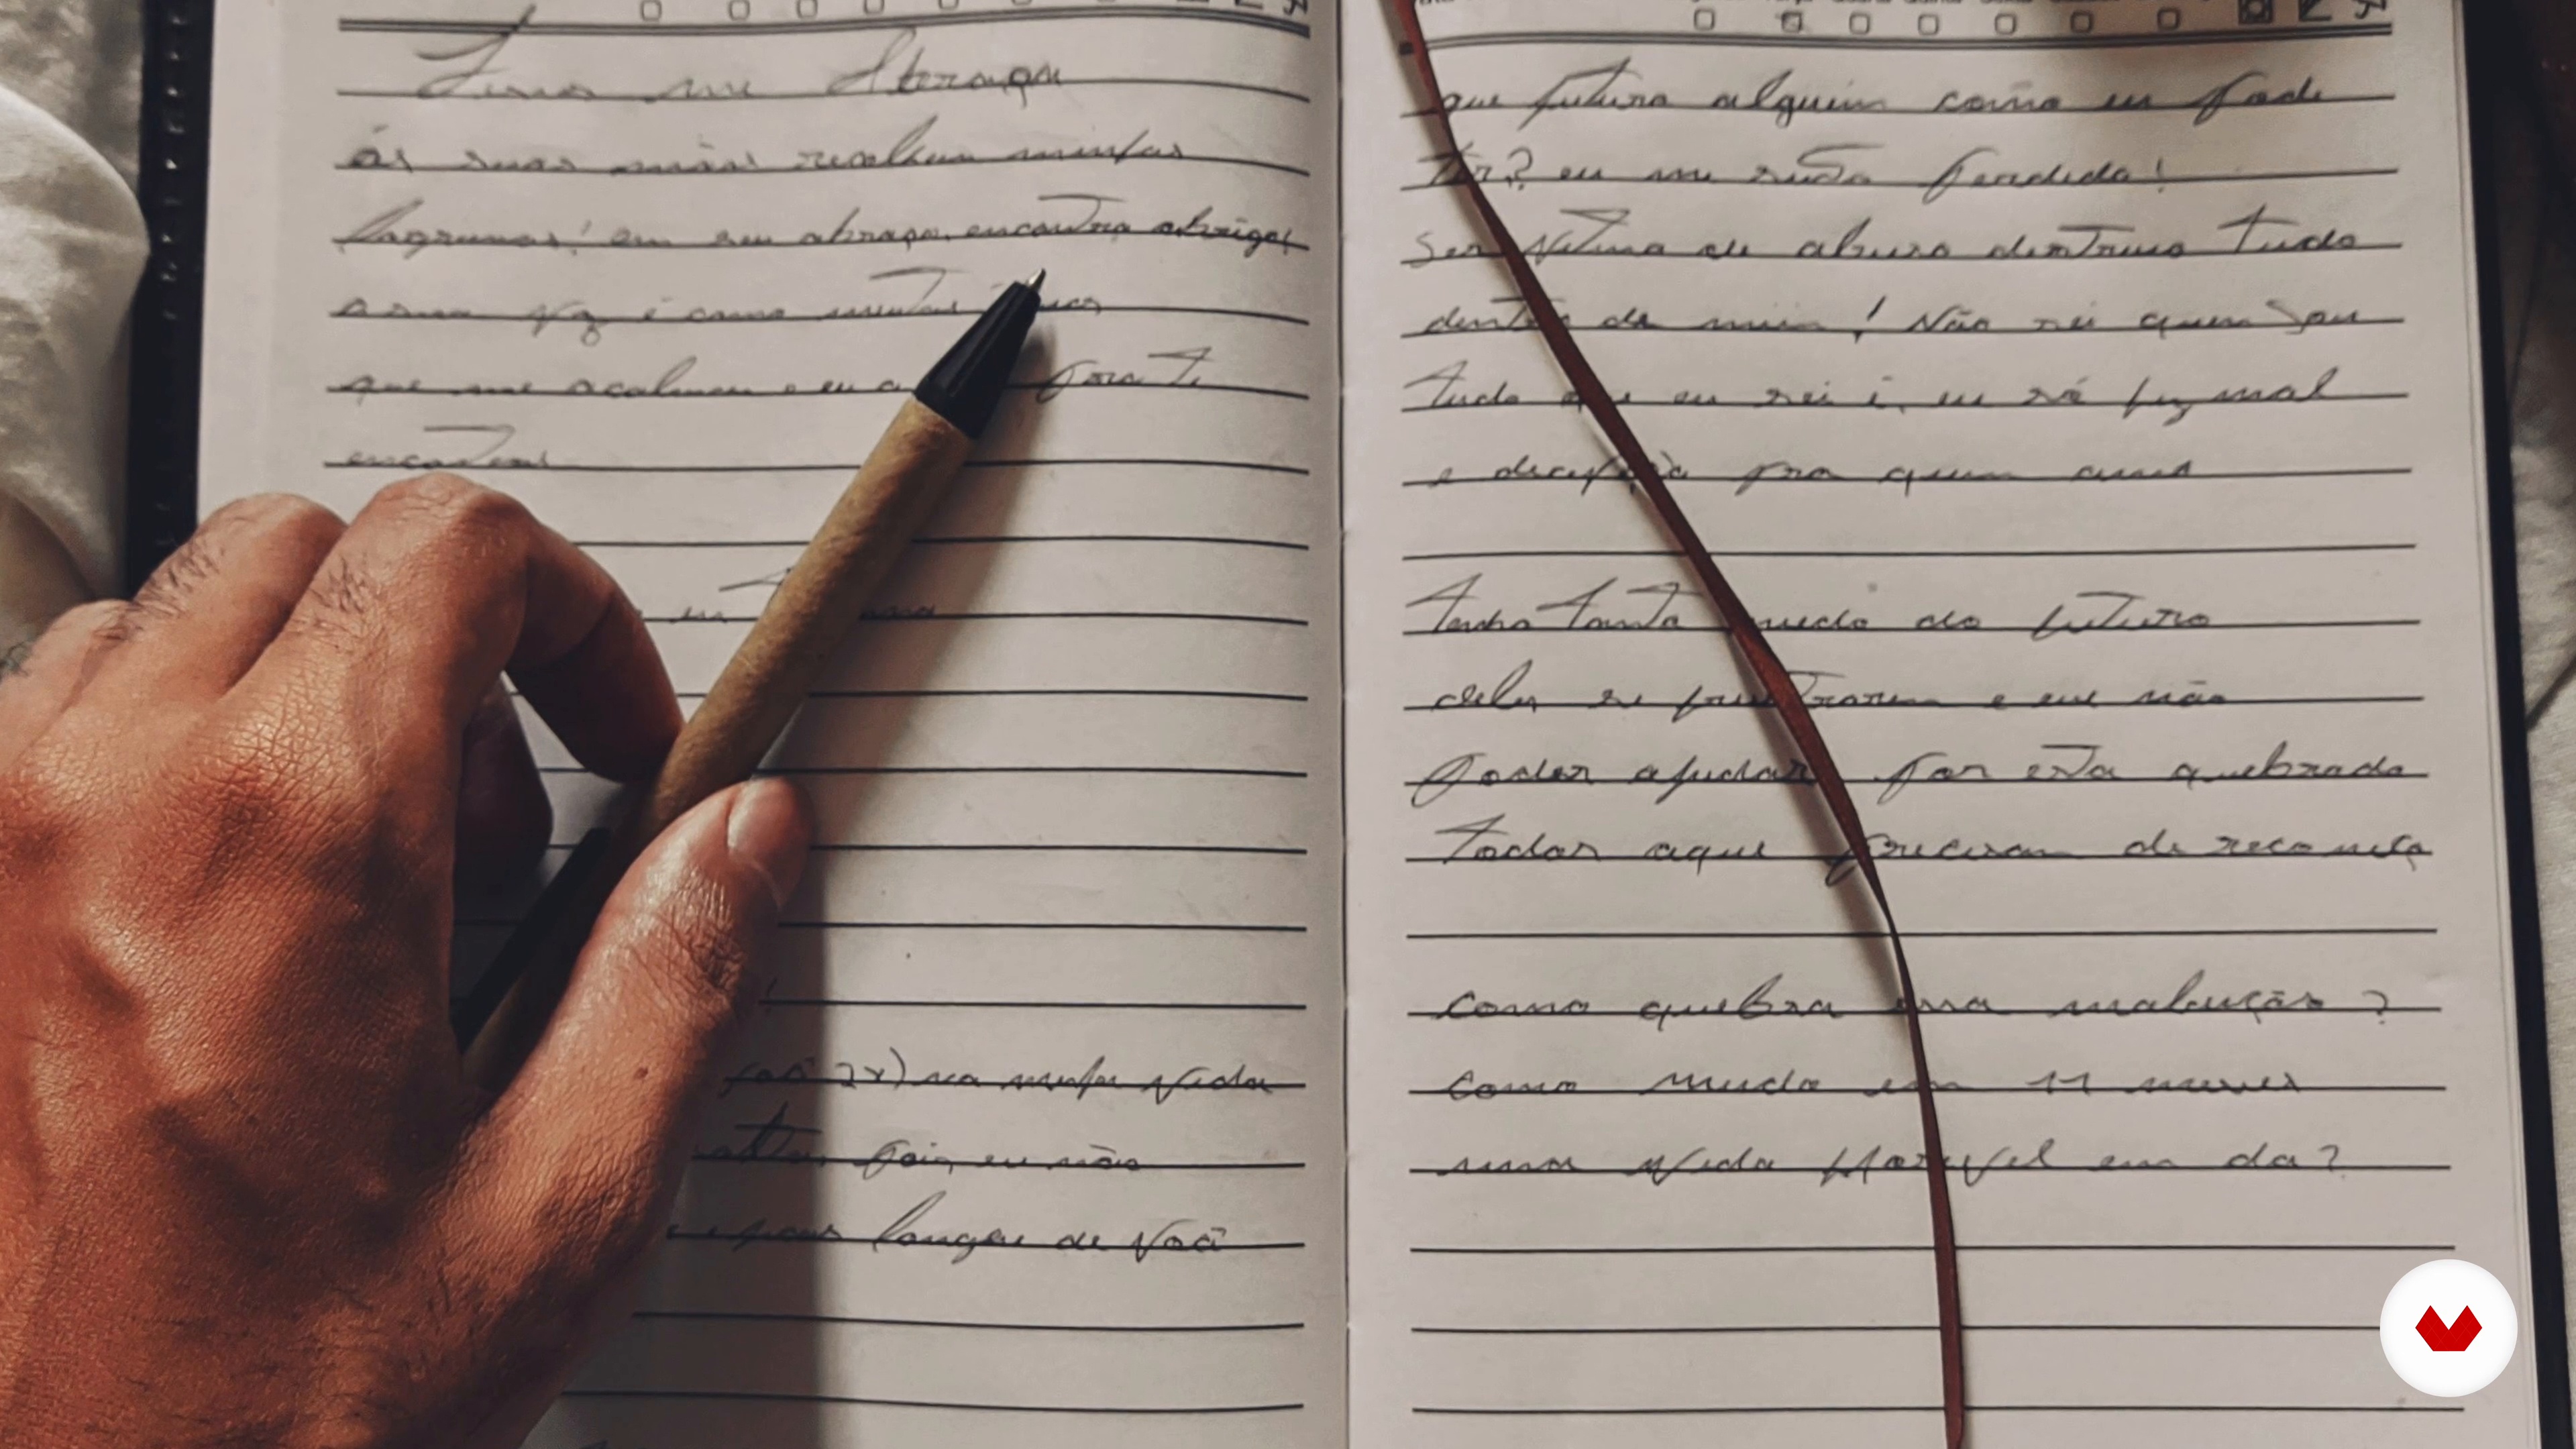 Jesus me Abraça
as suas mãos recolhem minhas
lagrimas! em seu abraço encontro abrigo!
a sua voz é como
que me acalmam e eu para te
encontrar
eu
(até 2x) na minha vida
pois eu não
longe de você
que futuro alguém como eu pode
ter? eu me sinto perdido!
Ser vitima de abuso destruiu tudo
dentro de mim! Não sei quem sou
tudo que eu sei é, eu só fiz mal
e decepção pra quem amo
tenho tanto medo do futuro
deles se frustrarem e eu não
poder ajudar por está quebrado
todos aqui precisam de recomeço
como quebra essa maldição?
como muda em 11 meses
uma vida Horivel em da?